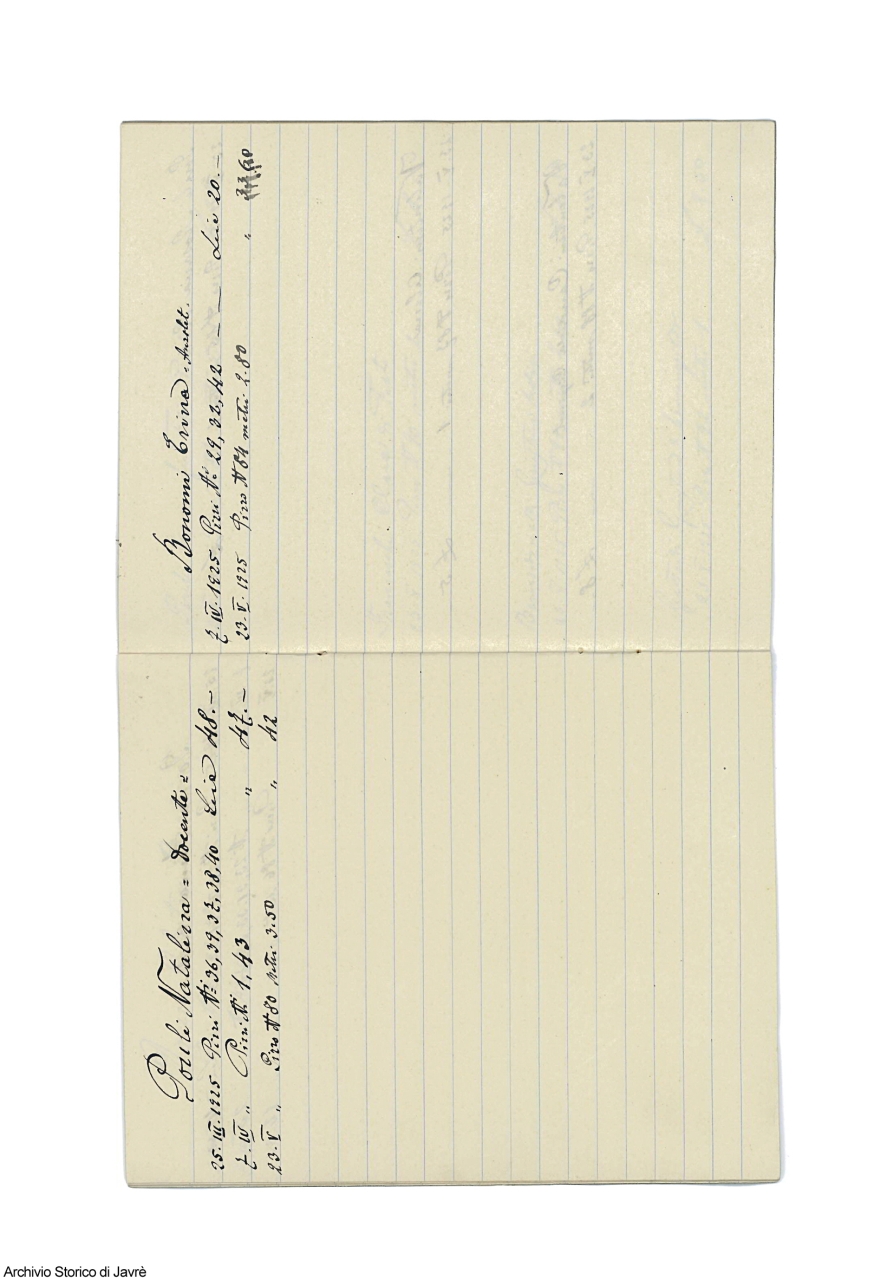 Pouli Natalina = Docente =
25. III. 1925 Pizzi Nⁱ 36, 39, 37, 38, 40 Lire 48.-
7. IV „ Pizzi Nⁱ 1, 43 „ 47.-
23. V „ Pizzo N 80 metri 3.50 „ 42
Bonomi Erina =
7. IV. 1925. Pizzi Nⁱ 29, 32, 42 - - Lire 20.-
23. V. 1925 Pizzo N 84 metri 2.80 „ 33,60
Archivio Storico di Javrè